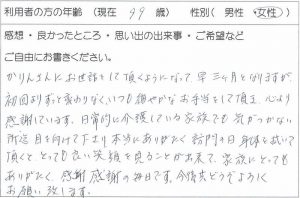 利用者の方の年齢 (現在 99 歳) 性別( 男性 ・ 女性 )
感想・良かったところ・思い出の出来事・ご希望など
ご自由にお書きください。
かりんさんにお世話をして頂くようになって、早三ヶ月となりますが、
初回よりずっと変わりなく、いつも穏やかなお手当をして頂き、心より
感謝しています。日常的に介護している家族でも気がつかない
所迄目を向けて下さり本当にありがたく訪問の日身体を拭いて
頂くととっても良い笑顔を見ることが出来て、家族にとっても
ありがたく、感謝感謝の毎日です。今後共どうぞよろしく
お願い致します。